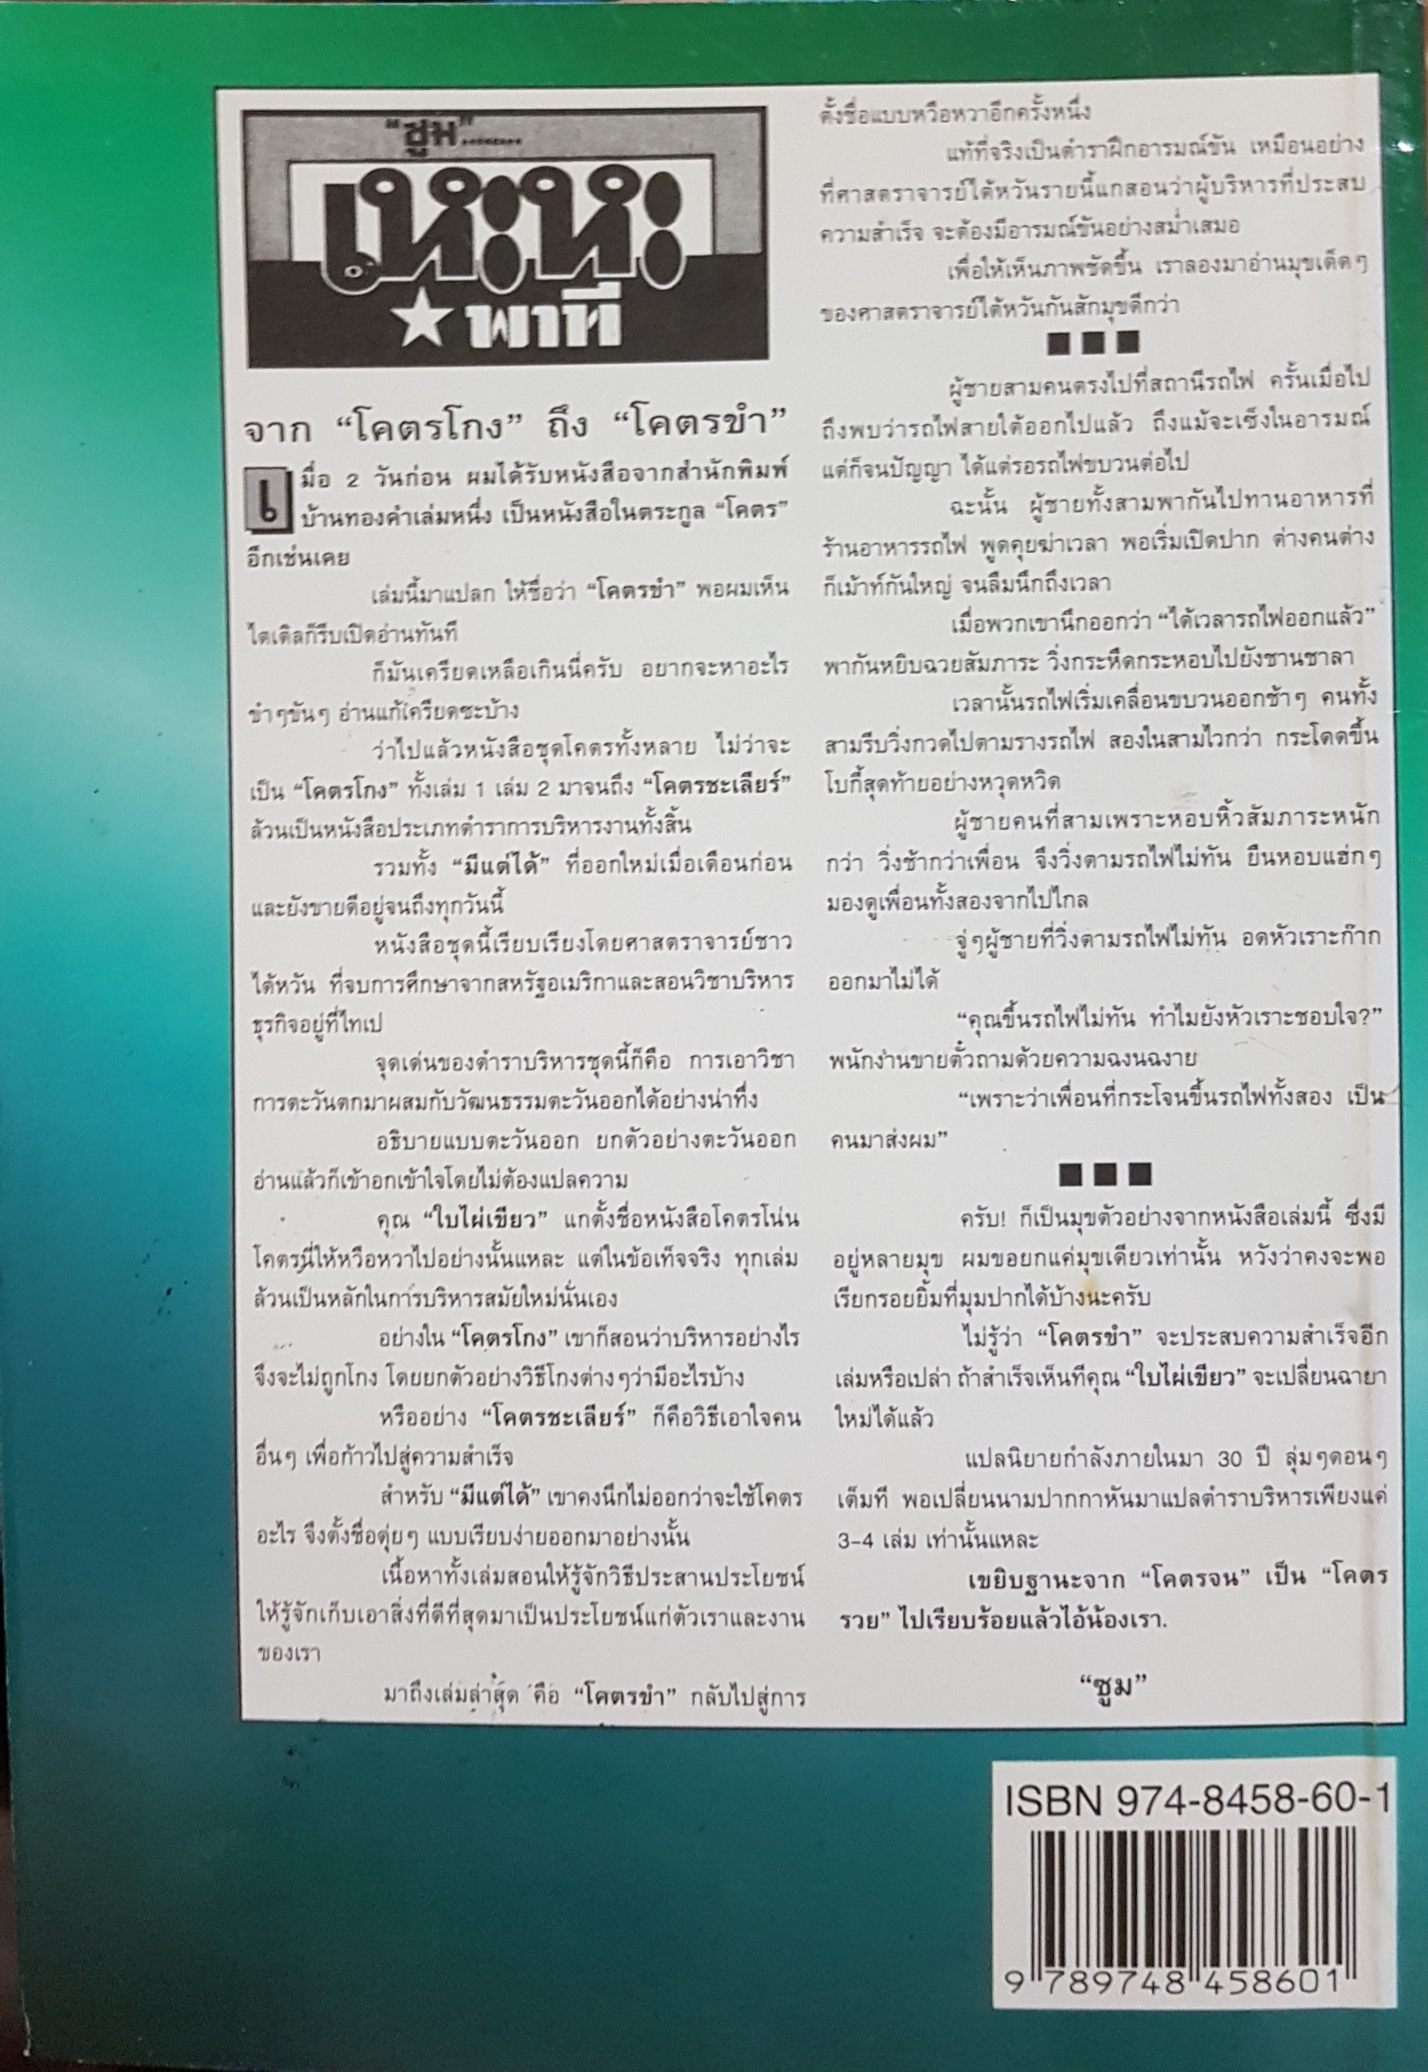 "ซูม"........
เหะหะ
พาที
จาก "โคตรโกง" ถึง "โคตรขำ"
เมื่อ 2 วันก่อน ผมได้รับหนังสือจากสำนักพิมพ์
บ้านทองคำเล่มหนึ่ง เป็นหนังสือในตระกูล "โคตร"
อีกเช่นเคย
เล่มนี้มาแปลก ให้ชื่อว่า "โคตรขำ" พอผมเห็น
ไตเติลก็รีบเปิดอ่านทันที
ก็มันเครียดเหลือเกินนี่ครับ อยากจะหาอะไร
ขำๆขันๆ อ่านแก้เครียดซะบ้าง
ว่าไปแล้วหนังสือชุดโคตรทั้งหลาย ไม่ว่าจะ
เป็น "โคตรโกง" ทั้งเล่ม 1 เล่ม 2 มาจนถึง "โคตรชะเลียร์"
ล้วนเป็นหนังสือประเภทตำราการบริหารงานทั้งสิ้น
รวมทั้ง "มีแต่ได้" ที่ออกใหม่เมื่อเดือนก่อน
และยังขายดีอยู่จนถึงทุกวันนี้
หนังสือชุดนี้เรียบเรียงโดยศาสตราจารย์ชาว
ไต้หวัน ที่จบการศึกษาจากสหรัฐอเมริกาและสอนวิชาบริหาร
ธุรกิจอยู่ที่ไทเป
จุดเด่นของตำราบริหารชุดนี้ก็คือ การเอาวิชา
การตะวันตกมาผสมกับวัฒนธรรมตะวันออกได้อย่างน่าทึ่ง
อธิบายแบบตะวันออก ยกตัวอย่างตะวันออก
อ่านแล้วก็เข้าอกเข้าใจโดยไม่ต้องแปลความ
คุณ "ใบไผ่เขียว" แกตั้งชื่อหนังสือโคตรโน่น
โคตรนี่ให้หวือหวาไปอย่างนั้นแหละ แต่ในข้อเท็จจริง ทุกเล่ม
ล้วนเป็นหลักในการบริหารสมัยใหม่นั่นเอง
อย่างใน "โคตรโกง" เขาก็สอนว่าบริหารอย่างไร
จึงจะไม่ถูกโกง โดยยกตัวอย่างวิธีโกงต่างๆว่ามีอะไรบ้าง
หรืออย่าง "โคตรชะเลียร์" ก็คือวิธีเอาใจคน
อื่นๆ เพื่อก้าวไปสู่ความสำเร็จ
สำหรับ "มีแต่ได้" เขาคงนึกไม่ออกว่าจะใช้โคตร
อะไร จึงตั้งชื่อตุ่ยๆ แบบเรียบง่ายออกมาอย่างนั้น
เนื้อหาทั้งเล่มสอนให้รู้จักวิธีประสานประโยชน์
ให้รู้จักเก็บเอาสิ่งที่ดีที่สุดมาเป็นประโยชน์แก่ตัวเราและงาน
ของเรา
มาถึงเล่มล่าสุด คือ "โคตรขำ" กลับไปสู่การ
ตั้งชื่อแบบหวือหวาอีกครั้งหนึ่ง
แท้ที่จริงเป็นตำราฝึกอารมณ์ขัน เหมือนอย่าง
ที่ศาสตราจารย์ไต้หวันรายนี้แกสอนว่าผู้บริหารที่ประสบ
ความสำเร็จ จะต้องมีอารมณ์ขันอย่างสม่ำเสมอ
เพื่อให้เห็นภาพชัดขึ้น เราลองมาอ่านมุขเด็ดๆ
ของศาสตราจารย์ไต้หวันกันสักมุขดีกว่า
■ ■ ■
ผู้ชายสามคนตรงไปที่สถานีรถไฟ ครั้นเมื่อไป
ถึงพบว่ารถไฟสายใต้ออกไปแล้ว ถึงแม้จะเซ็งในอารมณ์
แต่ก็จนปัญญา ได้แต่รอรถไฟขบวนต่อไป
ฉะนั้น ผู้ชายทั้งสามพากันไปทานอาหารที่
ร้านอาหารรถไฟ พูดคุยฆ่าเวลา พอเริ่มเปิดปาก ต่างคนต่าง
ก็เม้าท์กันใหญ่ จนลืมนึกถึงเวลา
เมื่อพวกเขานึกออกว่า "ได้เวลารถไฟออกแล้ว"
พากันหยิบฉวยสัมภาระ วิ่งกระหืดกระหอบไปยังชานชาลา
เวลานั้นรถไฟเริ่มเคลื่อนขบวนออกช้าๆ คนทั้ง
สามรีบวิ่งกวดไปตามรางรถไฟ สองในสามไวกว่า กระโดดขึ้น
โบกี้สุดท้ายอย่างหวุดหวิด
ผู้ชายคนที่สามเพราะหอบหิ้วสัมภาระหนัก
กว่า วิ่งช้ากว่าเพื่อน จึงวิ่งตามรถไฟไม่ทัน ยืนหอบแฮ่กๆ
มองดูเพื่อนทั้งสองจากไปไกล
จู่ๆผู้ชายที่วิ่งตามรถไฟไม่ทัน อดหัวเราะก๊าก
ออกมาไม่ได้
"คุณขึ้นรถไฟไม่ทัน ทำไมยังหัวเราะชอบใจ?"
พนักงานขายตั๋วถามด้วยความฉงนฉงาย
"เพราะว่าเพื่อนที่กระโจนขึ้นรถไฟทั้งสอง เป็น
คนมาส่งผม"
■ ■ ■
ครับ! ก็เป็นมุขตัวอย่างจากหนังสือเล่มนี้ ซึ่งมี
อยู่หลายมุข ผมขอยกแค่มุขเดียวเท่านั้น หวังว่าคงจะพอ
เรียกรอยยิ้มที่มุมปากได้บ้างนะครับ
ไม่รู้ว่า "โคตรขำ" จะประสบความสำเร็จอีก
เล่มหรือเปล่า ถ้าสำเร็จเห็นทีคุณ "ใบไผ่เขียว" จะเปลี่ยนฉายา
ใหม่ได้แล้ว
แปลนิยายกำลังภายในมา 30 ปี ลุ่มๆดอนๆ
เต็มที พอเปลี่ยนนามปากกาหันมาแปลตำราบริหารเพียงแค่
3-4 เล่ม เท่านั้นแหละ
เขยิบฐานะจาก "โคตรจน" เป็น "โคตร
รวย" ไปเรียบร้อยแล้วไอ้น้องเรา.
"ซูม"
ISBN 974-8458-60-1
9 789748 458601